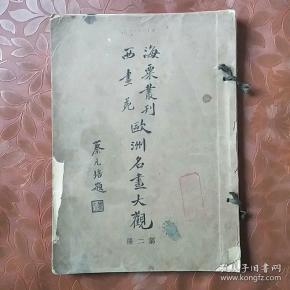 海粟叢刊
西畫苑
歐洲名畫大觀
蔡元培題
第二集
孔夫子旧书网